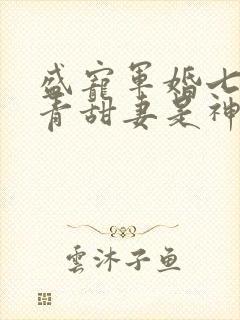 盛寵軍婚七
青甜妻是神
雲沐子魚